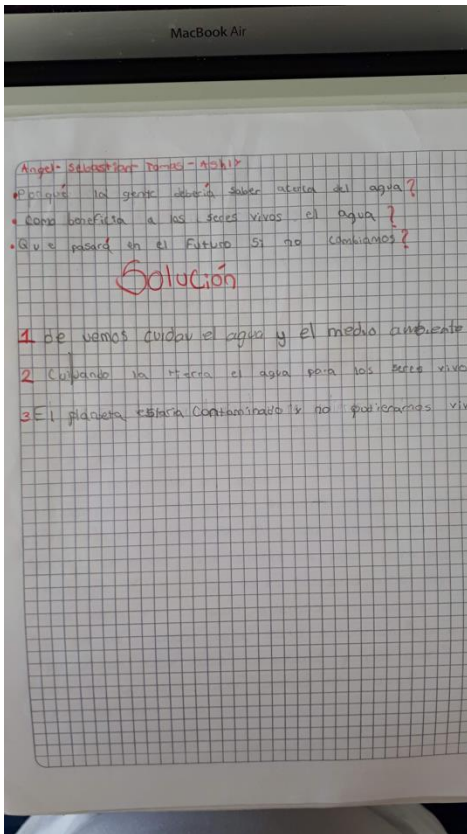 MacBook Air
Angel - Sebastian Tomas - Ashly
• Porqué la gente debería saber acerca del agua?
• Como beneficia a los seres vivos el agua?
• Que pasará en el Futuro si no cambiamos?
Solución
1 De vemos cuidar el agua y el medio ambiente
2 Cuidando la tierra el agua para los seres vivo
3 El planeta estaria contaminado y no podieramos viv